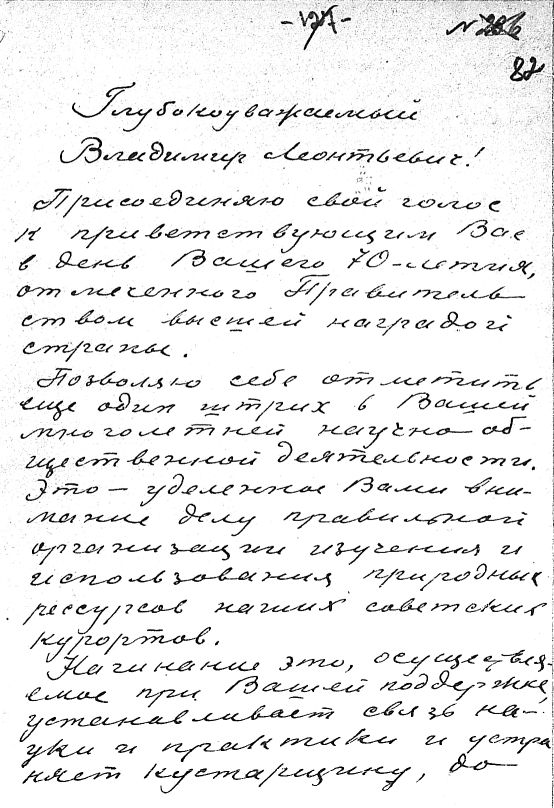 -127-
N 286
82
Глубокоуважаемый
Владимир Леонтьевич!
Присоединяю свой голос
к приветствующим Вас
в день Вашего 70-летия,
отмеченного Правитель-
ством высшей наградой
страны.
Позволяю себе отметить
еще один штрих в Вашей
многолетней научно-об-
щественной деятельности.
Это – уделенное Вами вни-
мание делу правильной
организации изучения и
использования природных
рессурсов наших советских
курортов.
Начинание это, осуществля-
емое при Вашей поддержке,
устанавливает связь на-
уки и практики и устра
няет кустарщину, до